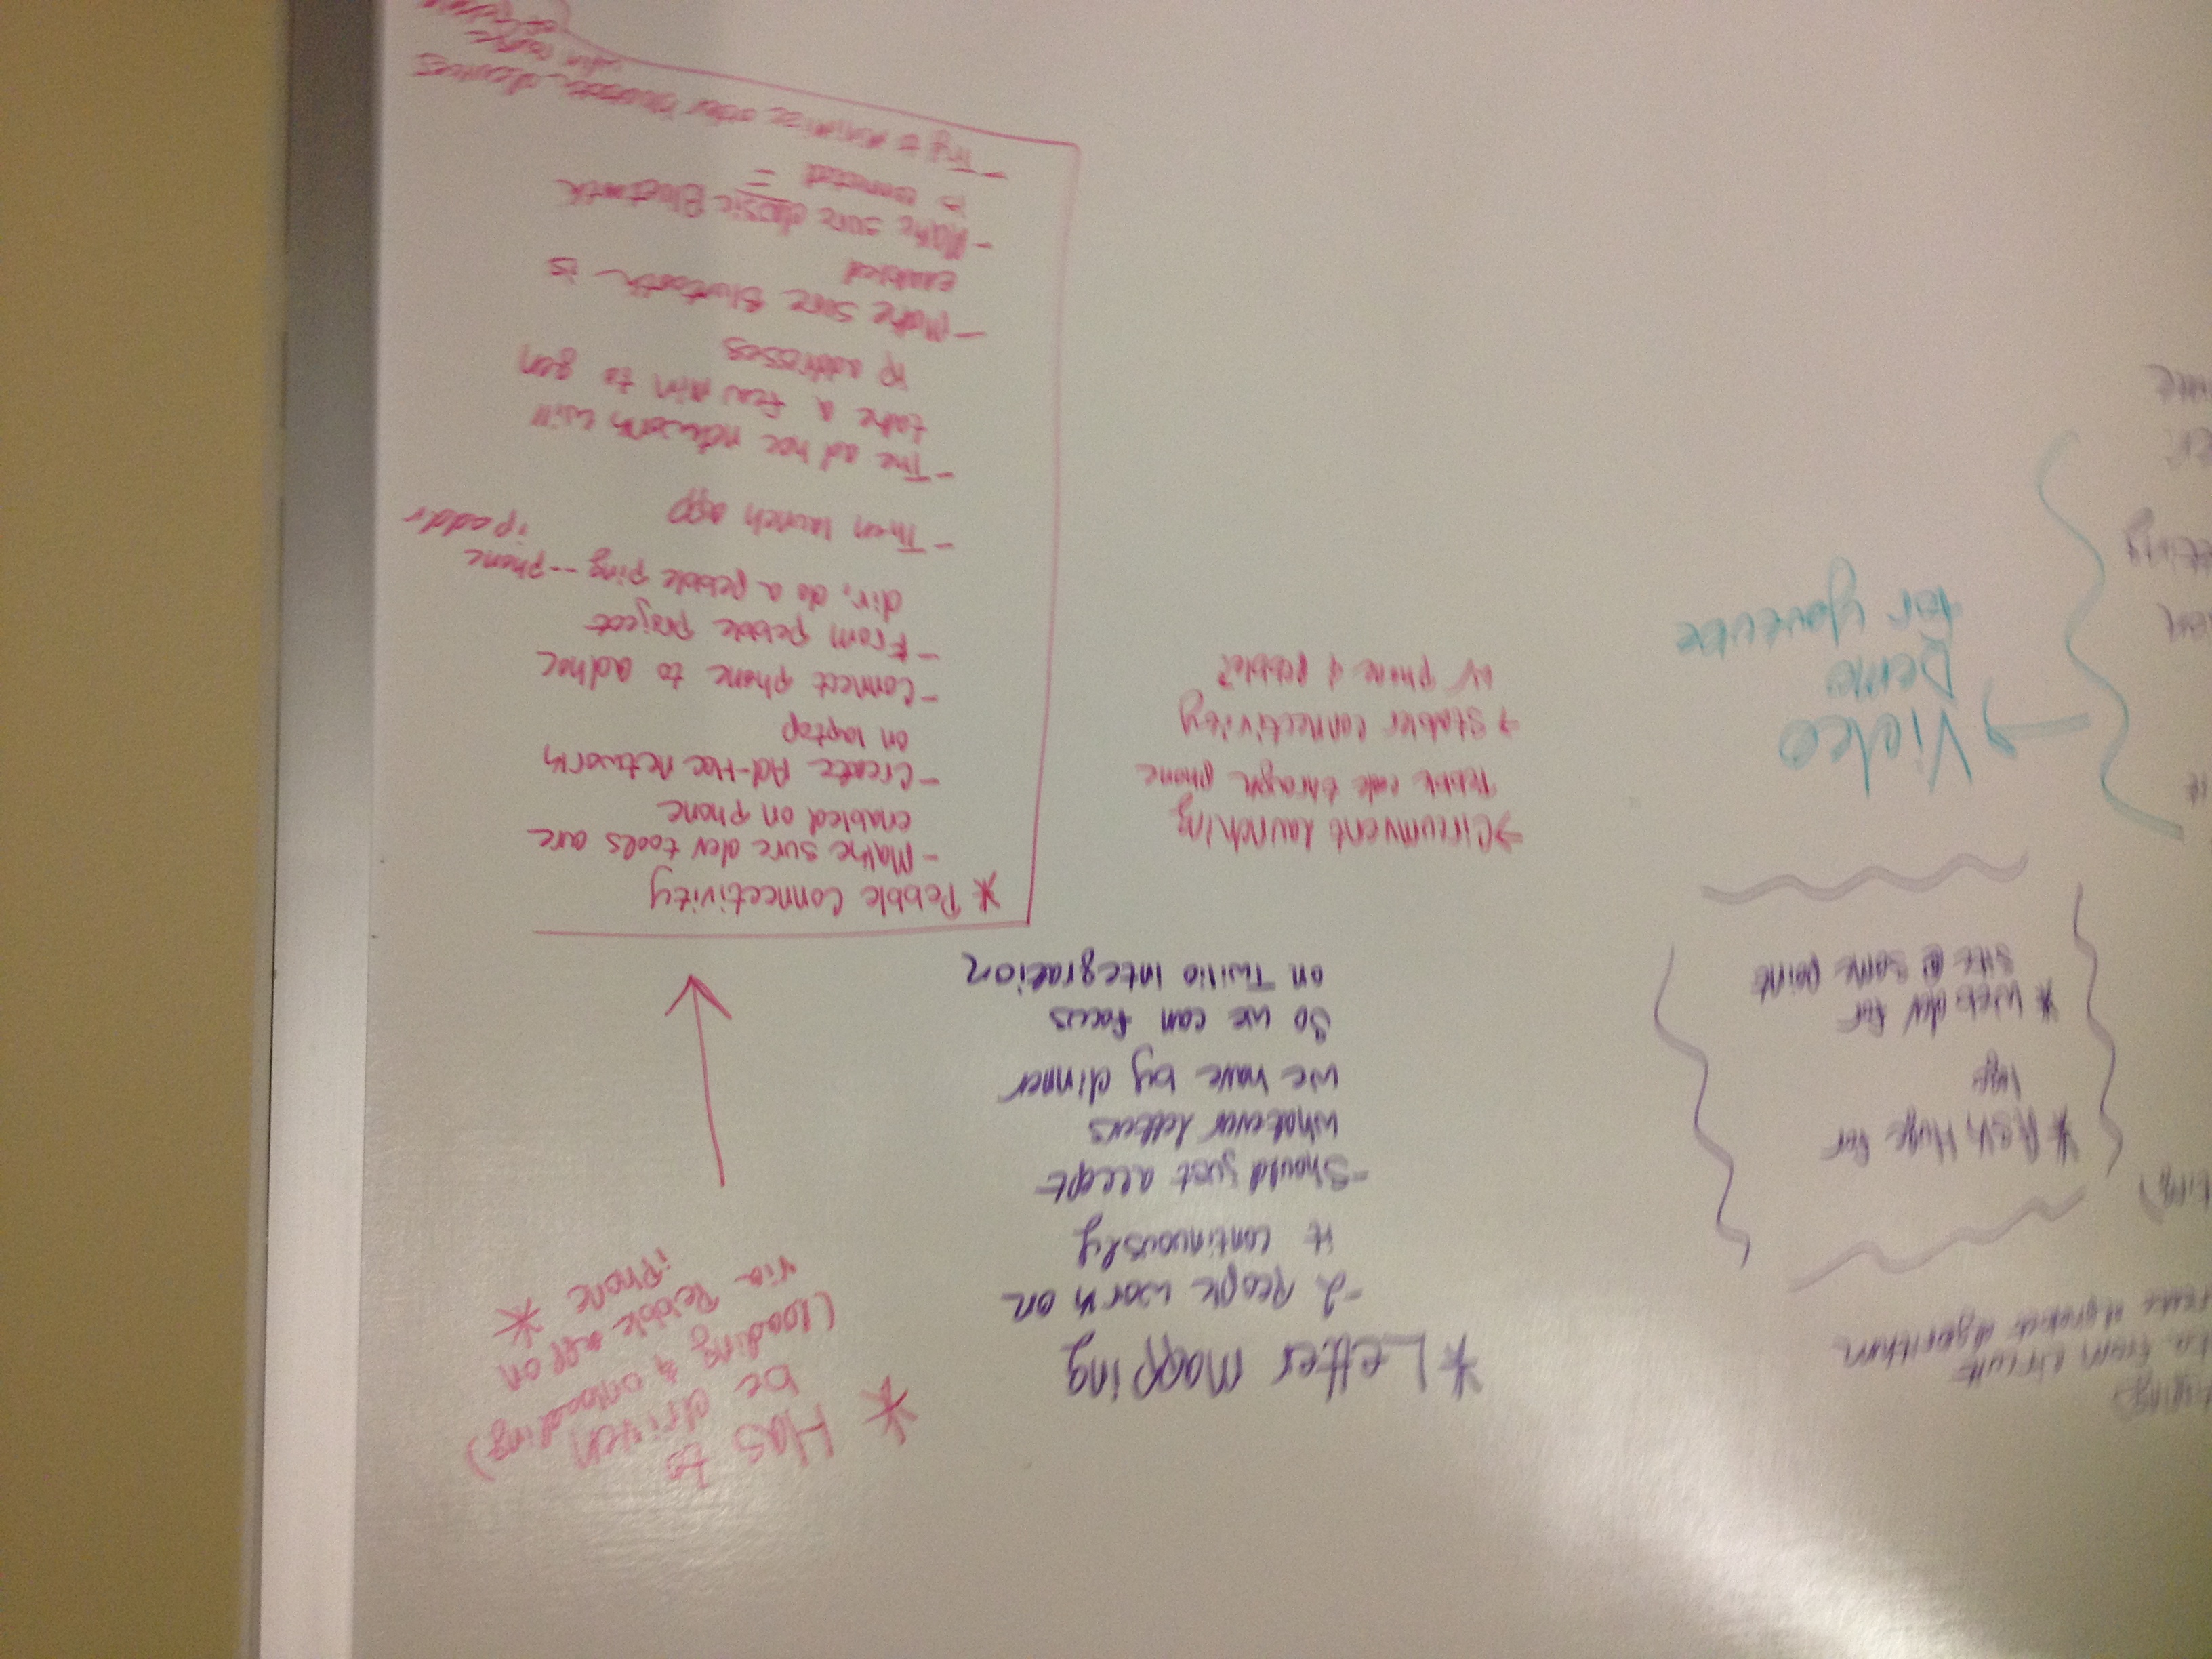 * Has to
be driven
(loading & onloading)
via Pebble app on
iPhone *
* Letter mapping
- 2 people work on
it continuously
- Should just accept
whatever letters
we have by dinner
so we can focus
on Twilio integration
* Pebble Connectivity
- Make sure dev tools are
enabled on phone
- Create Ad-Hoc network
on laptop
- Connect phone to adhoc
- From pebble project
dir, do a pebble ping --phone
ipaddr
- Then launch app
- The ad hoc network will
take a few min to gen
ip addresses
- Make sure Bluetooth is
enabled
- Make sure classic Bluetooth
is connected
- Try to minimize other Bluetooth devices
→ Circumvent launching
Pebble code through phone
→ Stabler connectivity
w/ phone & pebble?
* Ask Huge for
* Web dev for
site @ some point
→ Video
Demo
for youtube
from circuit
algorithm